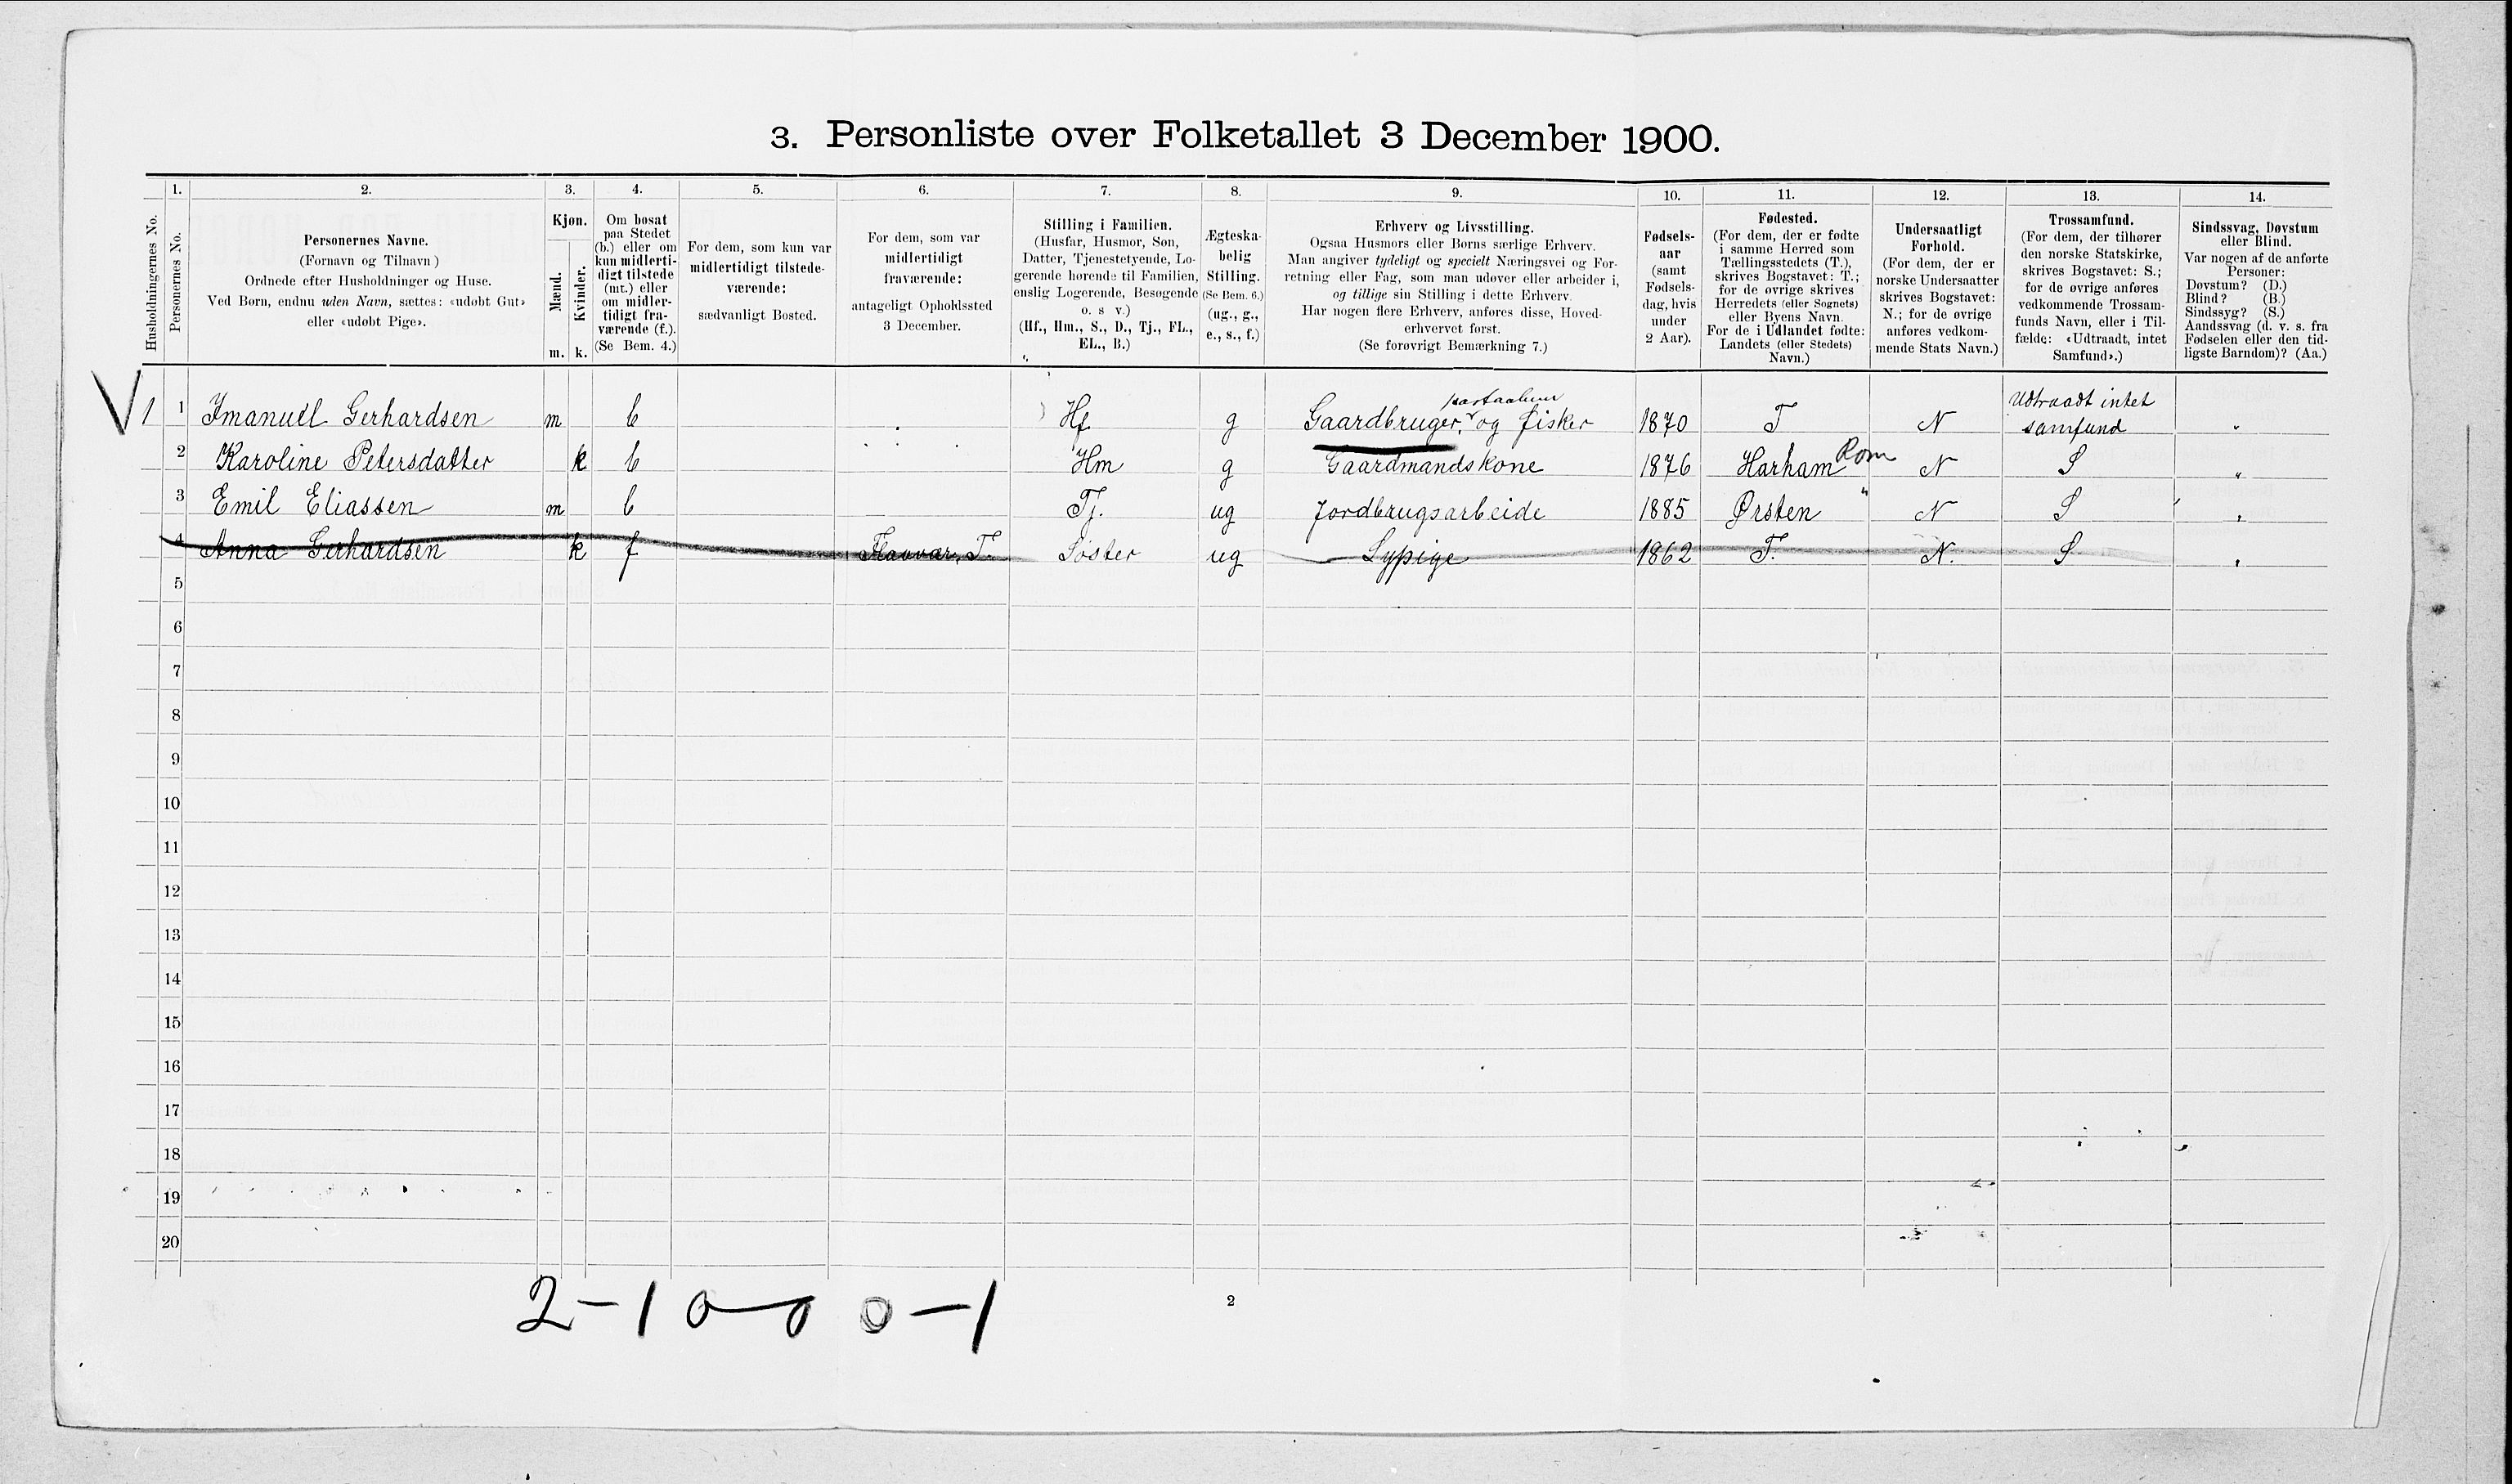 3. Personliste over Folketallet 3 December 1900.
1. 2. 3. 4. 5. 6. 7. 8. 9. 10. 11. 12. 13. 14.
Husholdningernes No.
Personernes No.
Personernes Navne.
(Fornavn og Tilnavn)
Ordnede efter Husholdninger og Huse.
Ved Børn, endnu uden Navn, sættes: «udøbt Gut»
eller «udøbt Pige».
Kjøn.
Mænd.
Kvinder.
m. k.
Om bosat
paa Stedet
(b.) eller om
kun midlerti-
digt tilstede
(mt.) eller
om midler-
tidigt fra-
værende (f.).
(Se Bem. 4.)
For dem, som kun var
midlertidigt tilstede-
værende:
sædvanligt Bosted.
For dem, som var
midlertidigt
fraværende:
antageligt Opholdssted
3 December.
Stilling i Familien.
(Husfar, Husmor, Søn,
Datter, Tjenestetyende, Lo-
gerende hørende til Familien,
enslig Logerende, Besøgende
o. s v.)
(Hf., Hm., S., D., Tj., FL.,
EL., B.)
Ægteska-
belig
Stilling.
(Se Bem. 6.)
(ug., g.,
e., s., f.)
Erhverv og Livsstilling.
Ogsaa Husmors eller Børns særlige Erhverv.
Man angiver tydeligt og specielt Næringsvei og For-
retning eller Fag, som man udøver eller arbeider i,
og tillige sin Stilling i dette Erhverv.
Har nogen flere Erhverv, anføres disse, Hoved-
erhvervet først.
(Se forøvrigt Bemærkning 7.)
Fødsels-
aar
(samt
Fødsels-
dag, hvis
under
2 Aar).
Fødested.
(For dem, der er fødte
i samme Herred som
Tællingsstedets (T.),
skrives Bogstavet: T.;
for de øvrige skrives
Herredets (eller Sognets)
eller Byens Navn.
For de i Udlandet fødte:
Landets (eller Stedets)
Navn.)
Undersaatligt
Forhold.
(For dem, der er
norske Undersaatter
skrives Bogstavet:
N.; for de øvrige
anføres vedkom-
mende Stats Navn.)
Trossamfund.
(For dem, der tilhører
den norske Statskirke,
skrives Bogstavet: S.;
for de øvrige anføres
vedkommende Trossam-
funds Navn, eller i Til-
fælde: «Udtraadt, intet
Samfund».)
Sindssvag, Døvstum
eller Blind.
Var nogen af de anførte
Personer:
Døvstum? (D.)
Blind? (B.)
Sindssyg? (S.)
Aandssvag (d. v. s. fra
Fødselen eller den tid-
ligste Barndom)? (Aa.)
V 1 1 Imanuell Gerhardsen m b Hf g Gaardbruger, og fisker 1870 T N Udtraadt intet
samfund "
2 Karoline Petersdatter k b Hm g Gaardmandskone 1876 Harham Rom N S "
3 Emil Eliassen m b Tj. ug Jordbrugsarbeide 1885 Ørsten " N S "
4 Anna Gerhardsen k f Flaavær, T. Søster ug Sypige 1862 T. N. S "
5
6
7
8
9
10
11
12
13
14
15
16
17
18
19
20
2-1 0-0 0-1
2